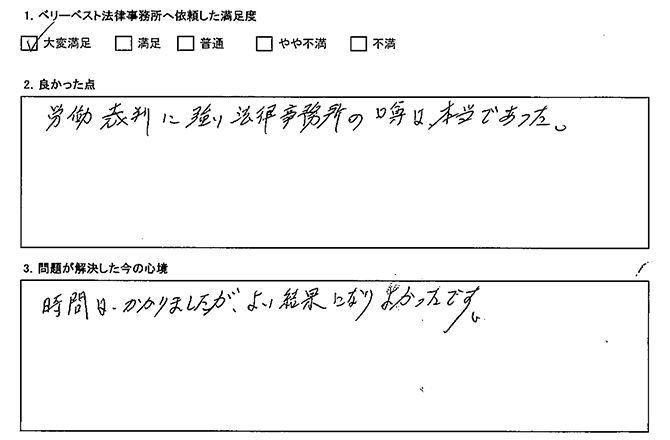 1. ベリーベスト法律事務所へ依頼した満足度
☑ 大変満足 □ 満足 □ 普通 □ やや不満 □ 不満
2. 良かった点
労働裁判に強い法律事務所の噂は、本当であった。
3. 問題が解決した今の心境
時間は、かかりましたが、よい結果になりよかったです。